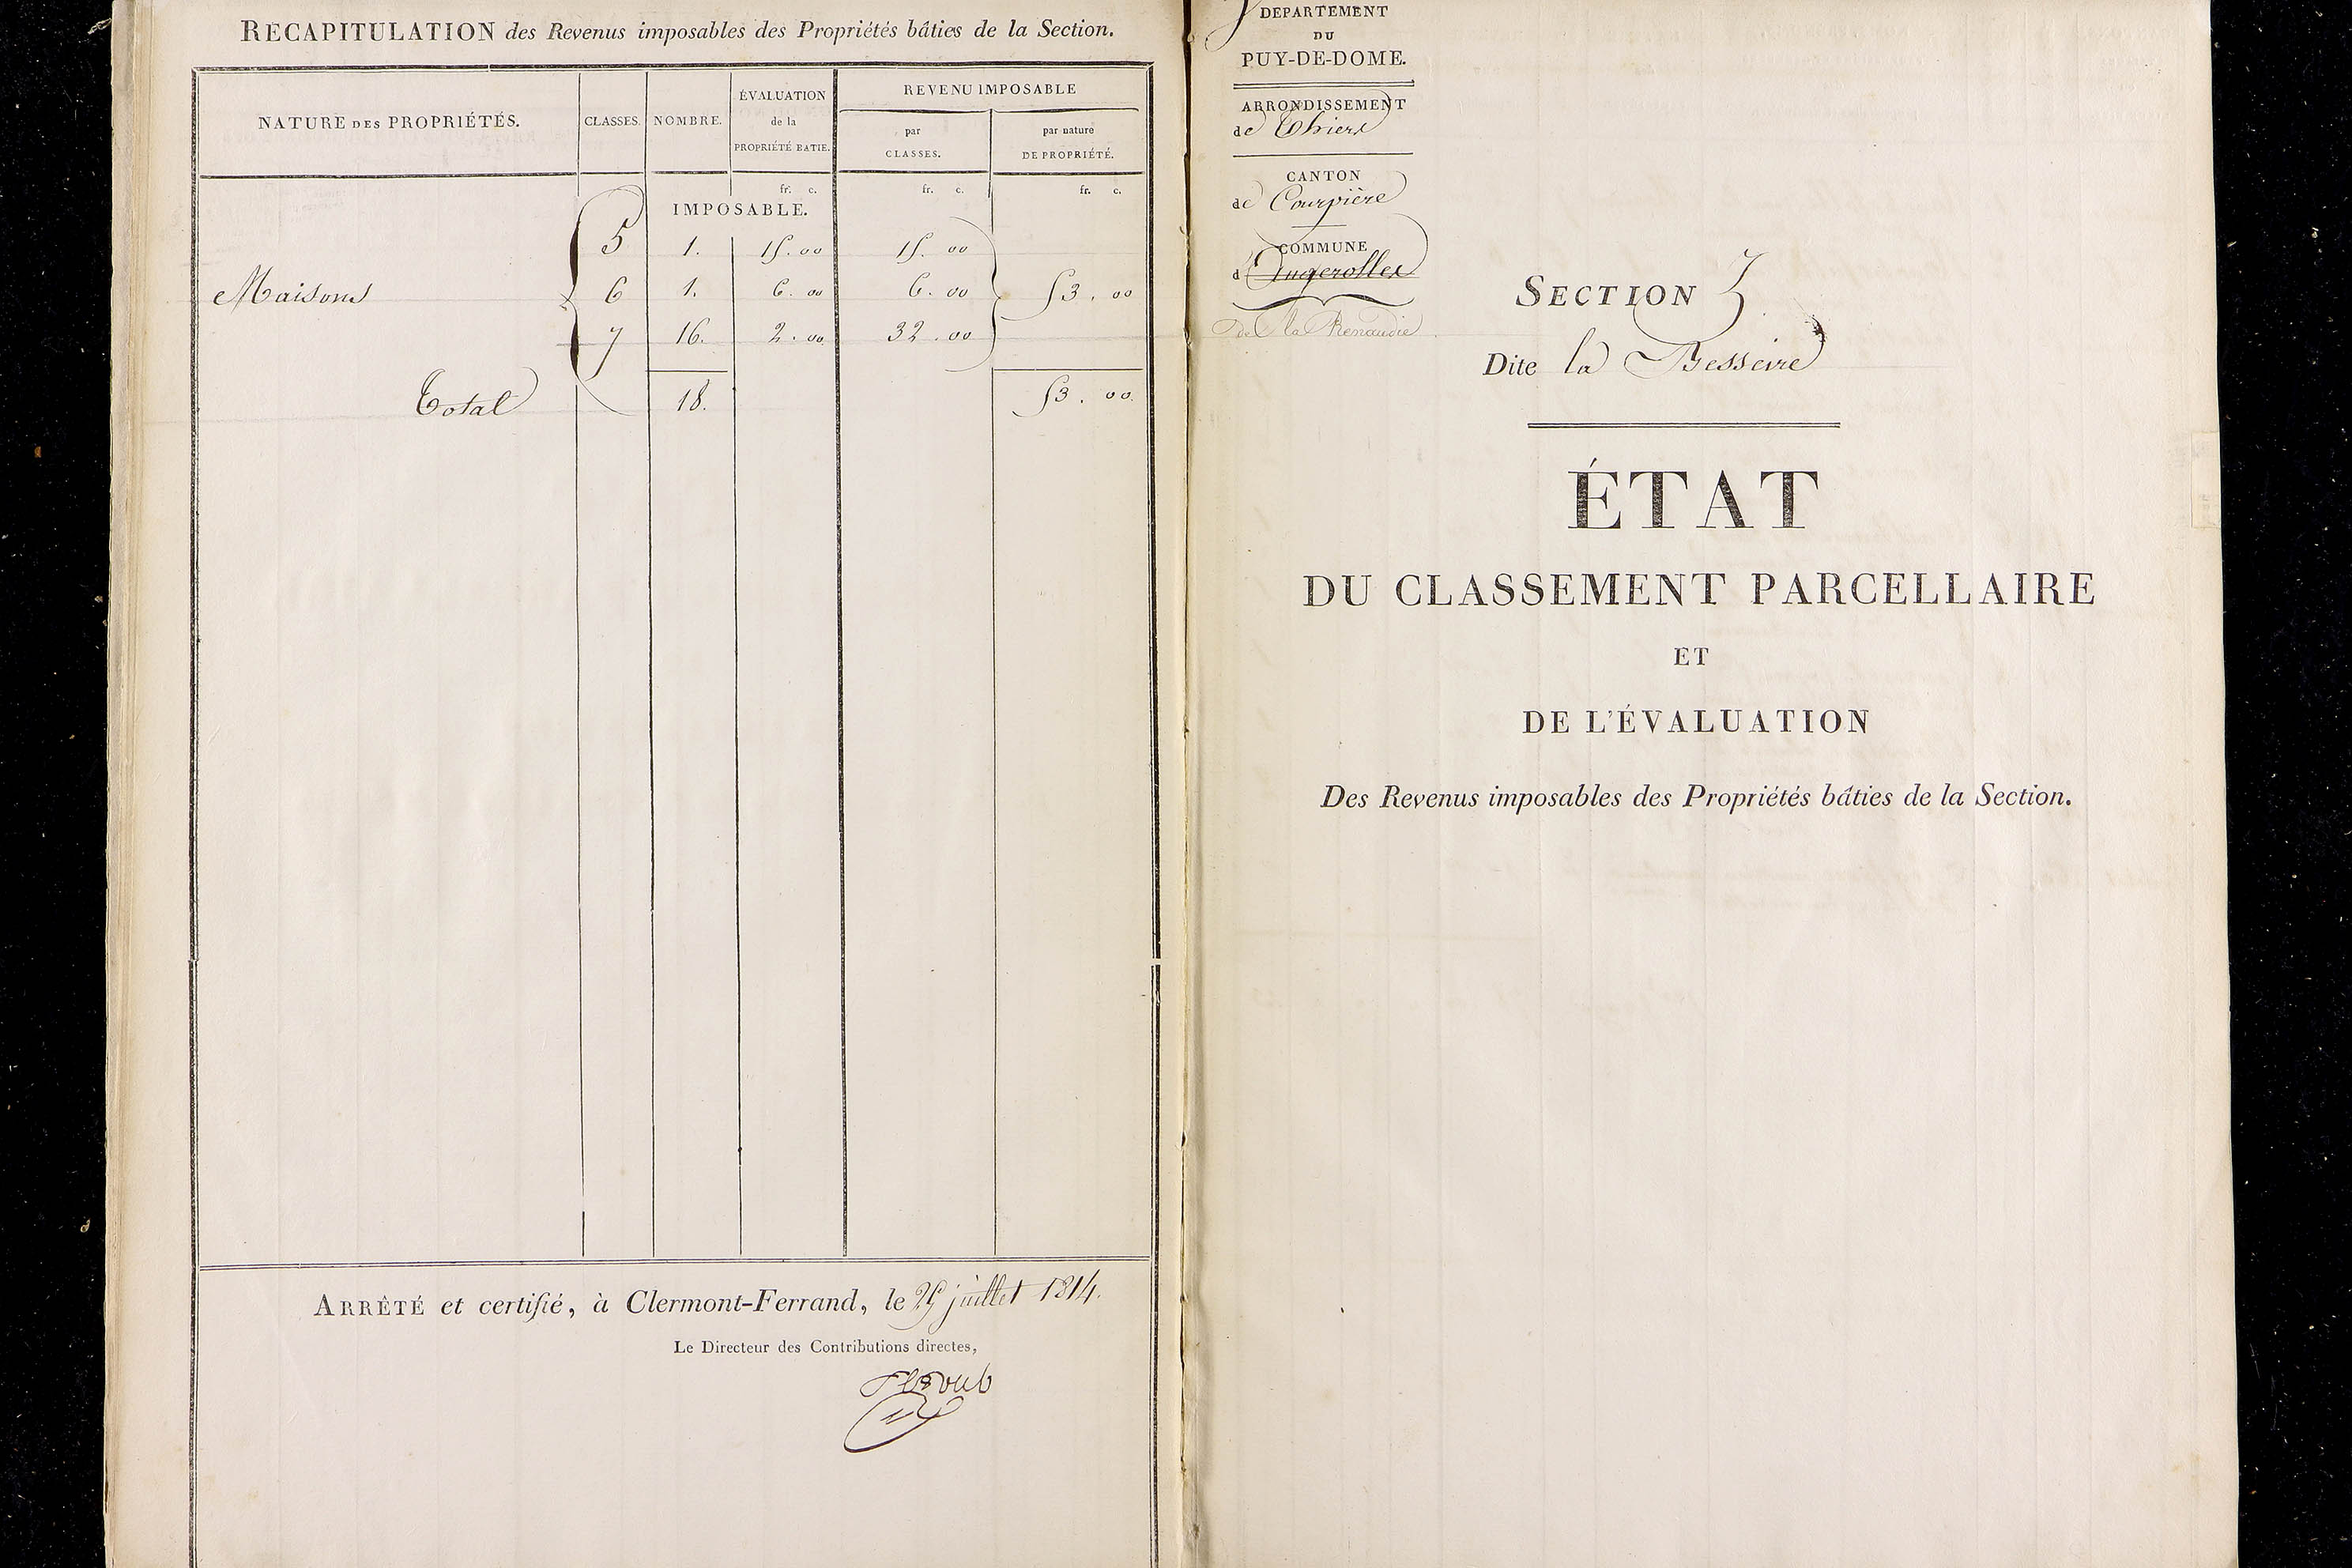 RÉCAPITULATION des Revenus imposables des Propriétés bâties de la Section.
NATURE DES PROPRIÉTÉS.
CLASSES.
NOMBRE.
ÉVALUATION
de la
PROPRIÉTÉ BATIE.
REVENU IMPOSABLE
par
CLASSES.
par nature
DE PROPRIÉTÉ.
fr. c. fr. c. fr. c.
IMPOSABLE.
5 1. 15. 00 15. 00
Maisons 6 1. 6. 00 6. 00 53. 00
7 16. 2. 00 32. 00
Total 18. 53. 00
ARRÊTÉ et certifié, à Clermont-Ferrand, le 25 juillet 1814.
Le Directeur des Contributions directes,
DEPARTEMENT
DU
PUY-DE-DOME.
ARRONDISSEMENT
de Thiers
CANTON
de Courpière
COMMUNE
d'Augerolles
de la Renaudie
SECTION
Dite la Besseire
ÉTAT
DU CLASSEMENT PARCELLAIRE
ET
DE L'ÉVALUATION
Des Revenus imposables des Propriétés bâties de la Section.